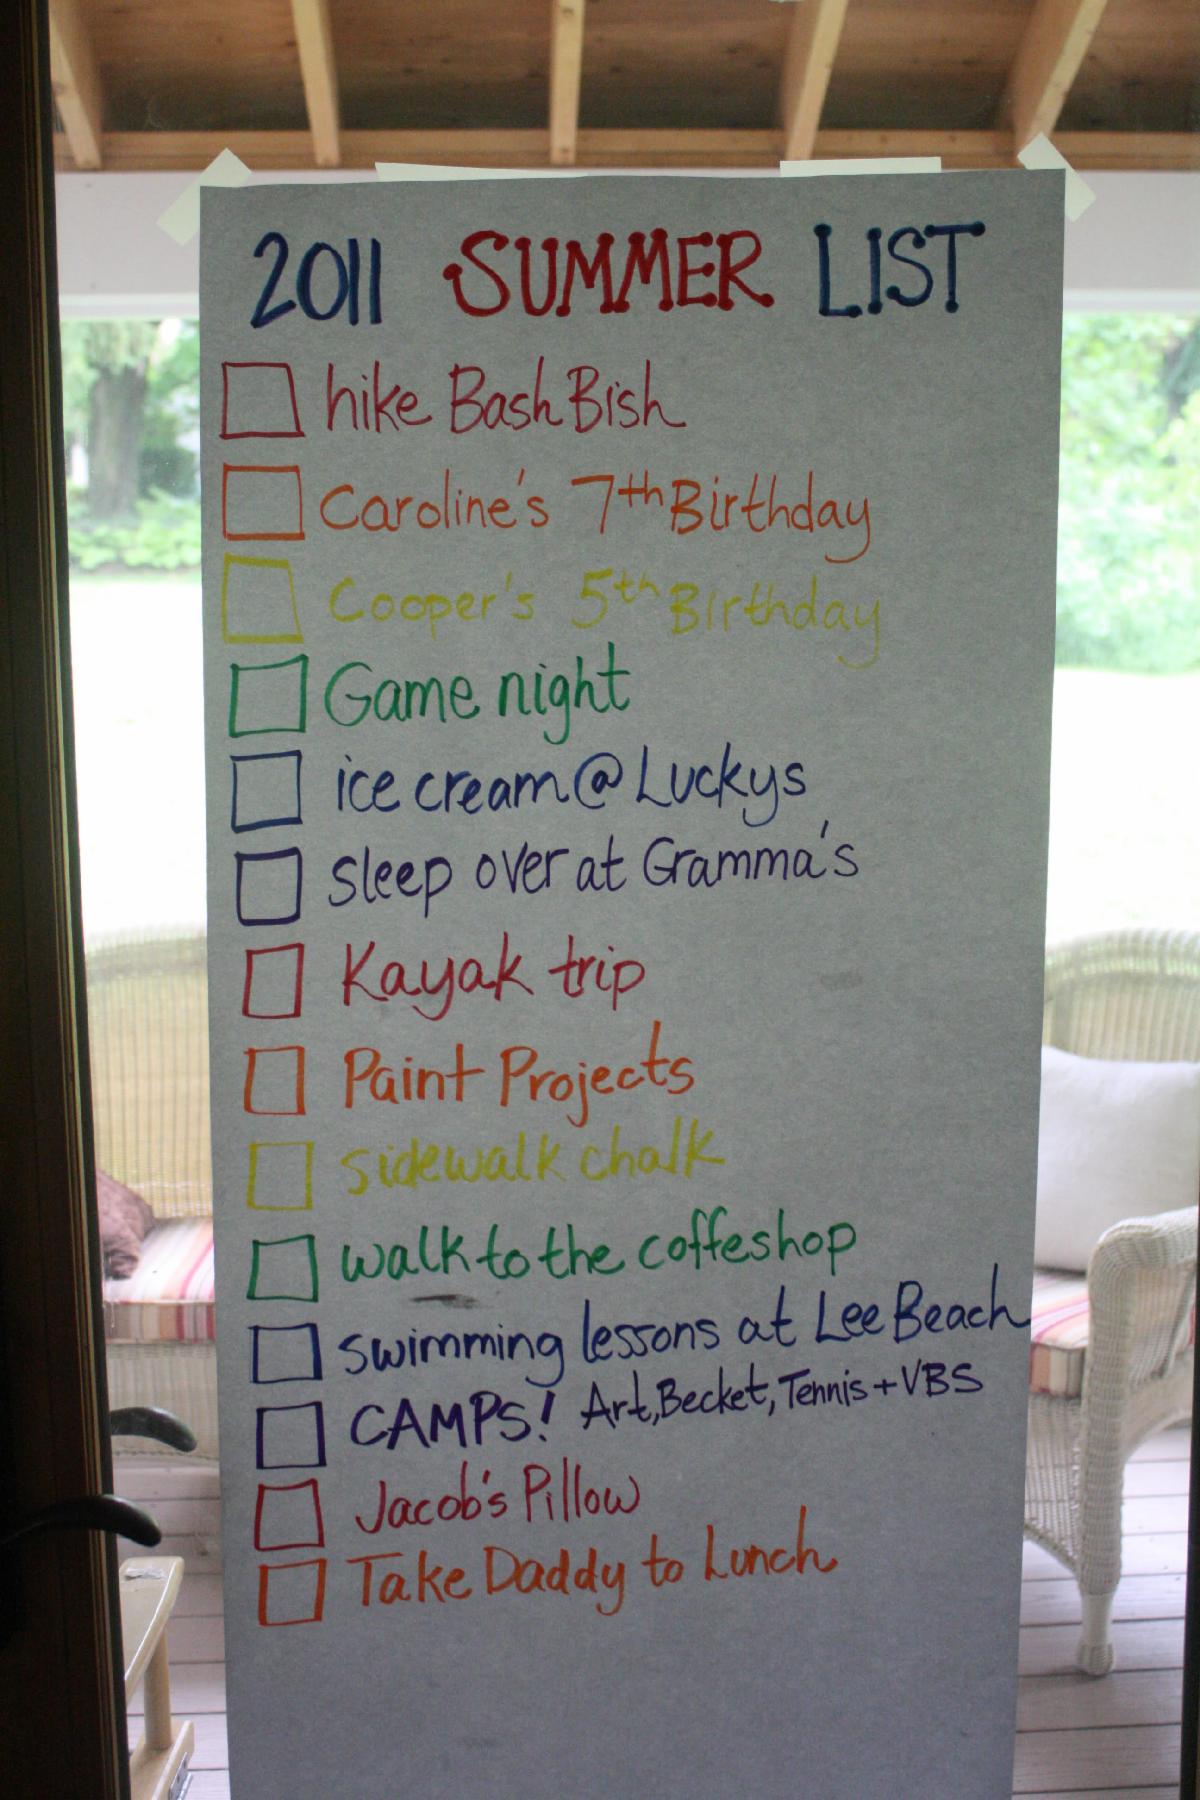 2011 SUMMER LIST
hike Bash Bish
Caroline's 7th Birthday
Cooper's 5th Birthday
Game night
ice cream @ Luckys
sleep over at Gramma's
Kayak trip
Paint Projects
sidewalk chalk
walk to the coffeshop
swimming lessons at Lee Beach
CAMPS! Art, Becket, Tennis + VBS
Jacob's Pillow
Take Daddy to Lunch